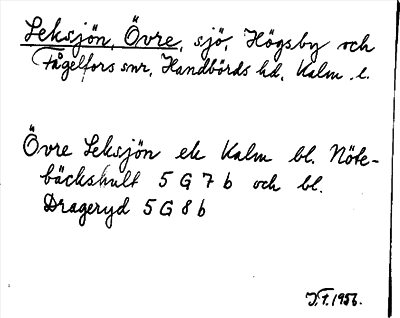 Leksjön, Övre, sjö, Högsby och
Fågelfors snr, Handbörds hd, Kalm. l.
Övre Leksjön ek Kalm bl. Nöte-
bäckshult 5 G 7 b och bl.
Drageryd 5 G 8 b
J.T. 1956.